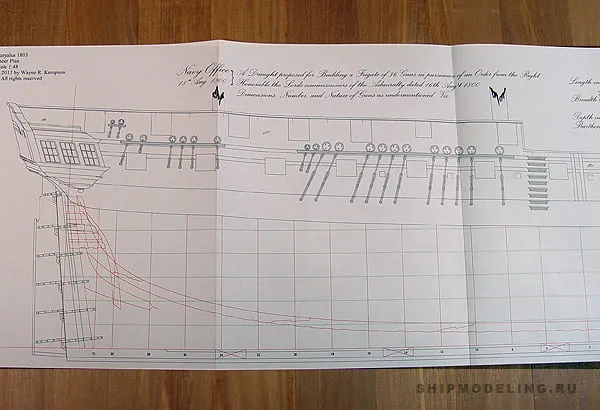 uryalus 1803
heer Plan
ale 1:48
2013 by Wayne R. Kempson
All rights reserved
Navy Office
15th Aug 1800
A Draught proposed for Building a Frigate of 36 Guns in pursuance of an Order from the Right
Honorable the Lords commissioners of the Admiralty dated 16th Aug't 1800
Dimensions, Number, and Nature of Guns as undermentioned Viz
Length on
Breadth
Depth in
Burthen
SHIPMODELING.RU